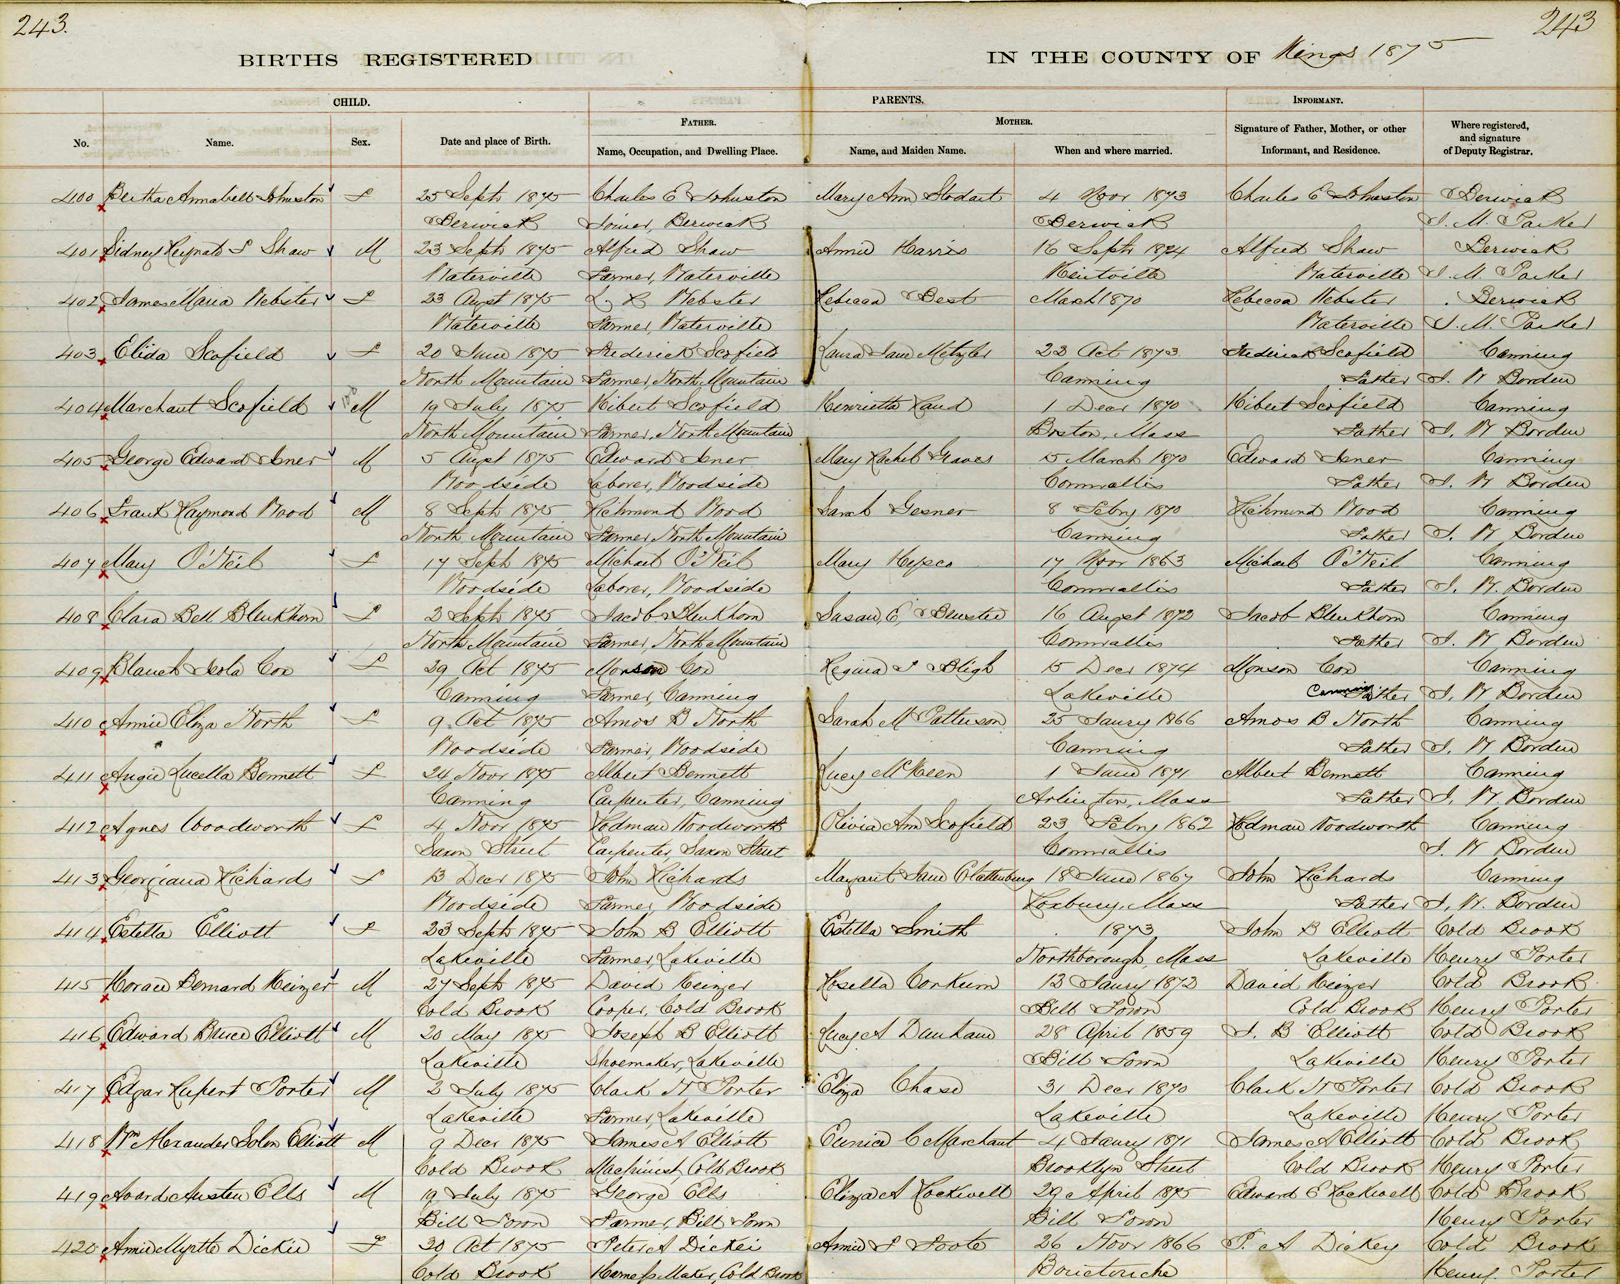 243. 243
BIRTHS REGISTERED IN THE COUNTY OF Kings 1875
CHILD. PARENTS. INFORMANT.
FATHER. MOTHER.
No. Name. Sex. Date and place of Birth. Name, Occupation, and Dwelling Place. Name, and Maiden Name. When and where married. Signature of Father, Mother, or other Informant, and Residence. Where registered, and signature of Deputy Registrar.
400 Bertha Annabell Johnston f 25 Septr 1875 Charles E Johnston Mary Ann Stodart 4 Novr 1873 Charles E Johnston Berwick
Berwick Joiner, Berwick Berwick S. M. Parker
401 Sidney Reynald S Shaw M 23 Septr 1875 Alfred Shaw Annie Harris 16 Septr 1874 Alfred Shaw Berwick
Waterville Farmer, Waterville Kentville Waterville S. M. Parker
402 James Maria Webster f 23 Augst 1875 Webster Rebecca Best March 1870 Rebecca Webster Berwick
Waterville Farmer, Waterville Waterville S. M. Parker
403 Elida Scofield f 20 June 1875 Frederick Scofield Laura Jane Metzler 23 Oct 1873 Frederick Scofield Canning
North Mountain Farmer, North Mountain Canning Father J. W Borden
404 Marchant Scofield M 19 July 1875 Hibert Scofield Henrietta Rand 1 Decr 1870 Hibert Scofield Canning
North Mountain Farmer, North Mountain Boston, Mass Father J. W Borden
405 George Edward Isner M 5 Augst 1875 Edward Isner Mary Rachel Graves 15 March 1870 Edward Isner Canning
Woodside Laborer, Woodside Cornwallis Father J. W Borden
406 Frank Raymond Wood M 8 Septr 1875 Richmond Wood Sarah Gesner 8 Febry 1870 Richmond Wood Canning
North Mountain Farmer, North Mountain Canning Father J. W Borden
407 Mary O'Neil f 17 Septr 1875 Michael O'Neil Mary 17 Novr 1863 Michael O'Neil Canning
Woodside Laborer, Woodside Cornwallis Father J. W. Borden
408 Clara Bell Blenkhorn f 2 Septr 1875 Jacob Blenkhorn Susan E, Bewster 16 Augst 1872 Jacob Blenkhorn Canning
North Mountain Farmer, North Mountain Cornwallis Father J. W Borden
409 Blanch Iola Cox f 29 Oct 1875 Monson Cox Regina S Bligh 15 Decr 1874 Monson Cox Canning
Canning Farmer, Canning Lakeville Canning Father J. W Borden
410 Annie Eliza North f 9 Oct 1875 Amos B North Sarah M Patterson 25 Jaury 1866 Amos B North Canning
Woodside Farmer, Woodside Canning Father J. W Borden
411 Angie Lucella Bennett f 24 Novr 1875 Albert Bennett Lucy McKeen 1 June 1871 Albert Bennett Canning
Canning Carpenter, Canning Arlington, Mass Father J. W. Borden
412 Agnes Woodworth f 4 Novr 1875 Rodman Woodworth Olivia Ann Scofield 23 Febry 1862 Rodman Woodworth Canning
Saxon Street Carpenter, Saxon Street Cornwallis J. W Borden
413 Georgiana Richards f 13 Decr 1875 John Richards Margaret Jane Clattenburg 18 June 1867 John Richards Canning
Woodside Farmer, Woodside Roxbury, Mass Father J. W. Borden
414 Estella Elliott f 23 Septr 1875 John B Elliott Estella Smith 1873 John B Elliott Cold Brook
Lakeville Farmer, Lakeville Northborough, Mass Lakeville Henry Porter
415 Horace Bernard Keizer M 27 Septr 1875 David Keizer Rosella Corkum 13 Jaury 1872 David Keizer Cold Brook
Cold Brook Cooper, Cold Brook Bill Town Cold Brook Henry Porter
416 Edward Bruce Elliott M 20 May 1875 Joseph B Elliott Lucy A Dunham 28 April 1859 J. B Elliott Cold Brook
Lakeville Shoemaker, Lakeville Bill Town Lakeville Henry Porter
417 Edgar Rupert Porter M 2 July 1875 Clark H Porter Eliza Chase 31 Decr 1870 Clark H Porter Cold Brook
Lakeville Farmer, Lakeville Lakeville Lakeville Henry Porter
418 Wm Alexander Solon Elliott M 9 Decr 1875 James A Elliott Eunice C Marchant 4 Jaury 1871 James A Elliott Cold Brook
Cold Brook Machinist, Cold Brook Brooklyn Street Cold Brook Henry Porter
419 Avard Austen Ells M 19 July 1875 George Ells Eliza A Rockwell 29 April 1875 Edward E Rockwell Cold Brook
Bill Town Farmer, Bill Town Bill Town Henry Porter
420 Annie Myrtle Dickie f 20 Oct 1875 Peter A Dickei Annie S Foote 26 Novr 1866 P. A Dickey Cold Brook
Cold Brook Harness Maker, Cold Brook Bouctouche Henry Porter